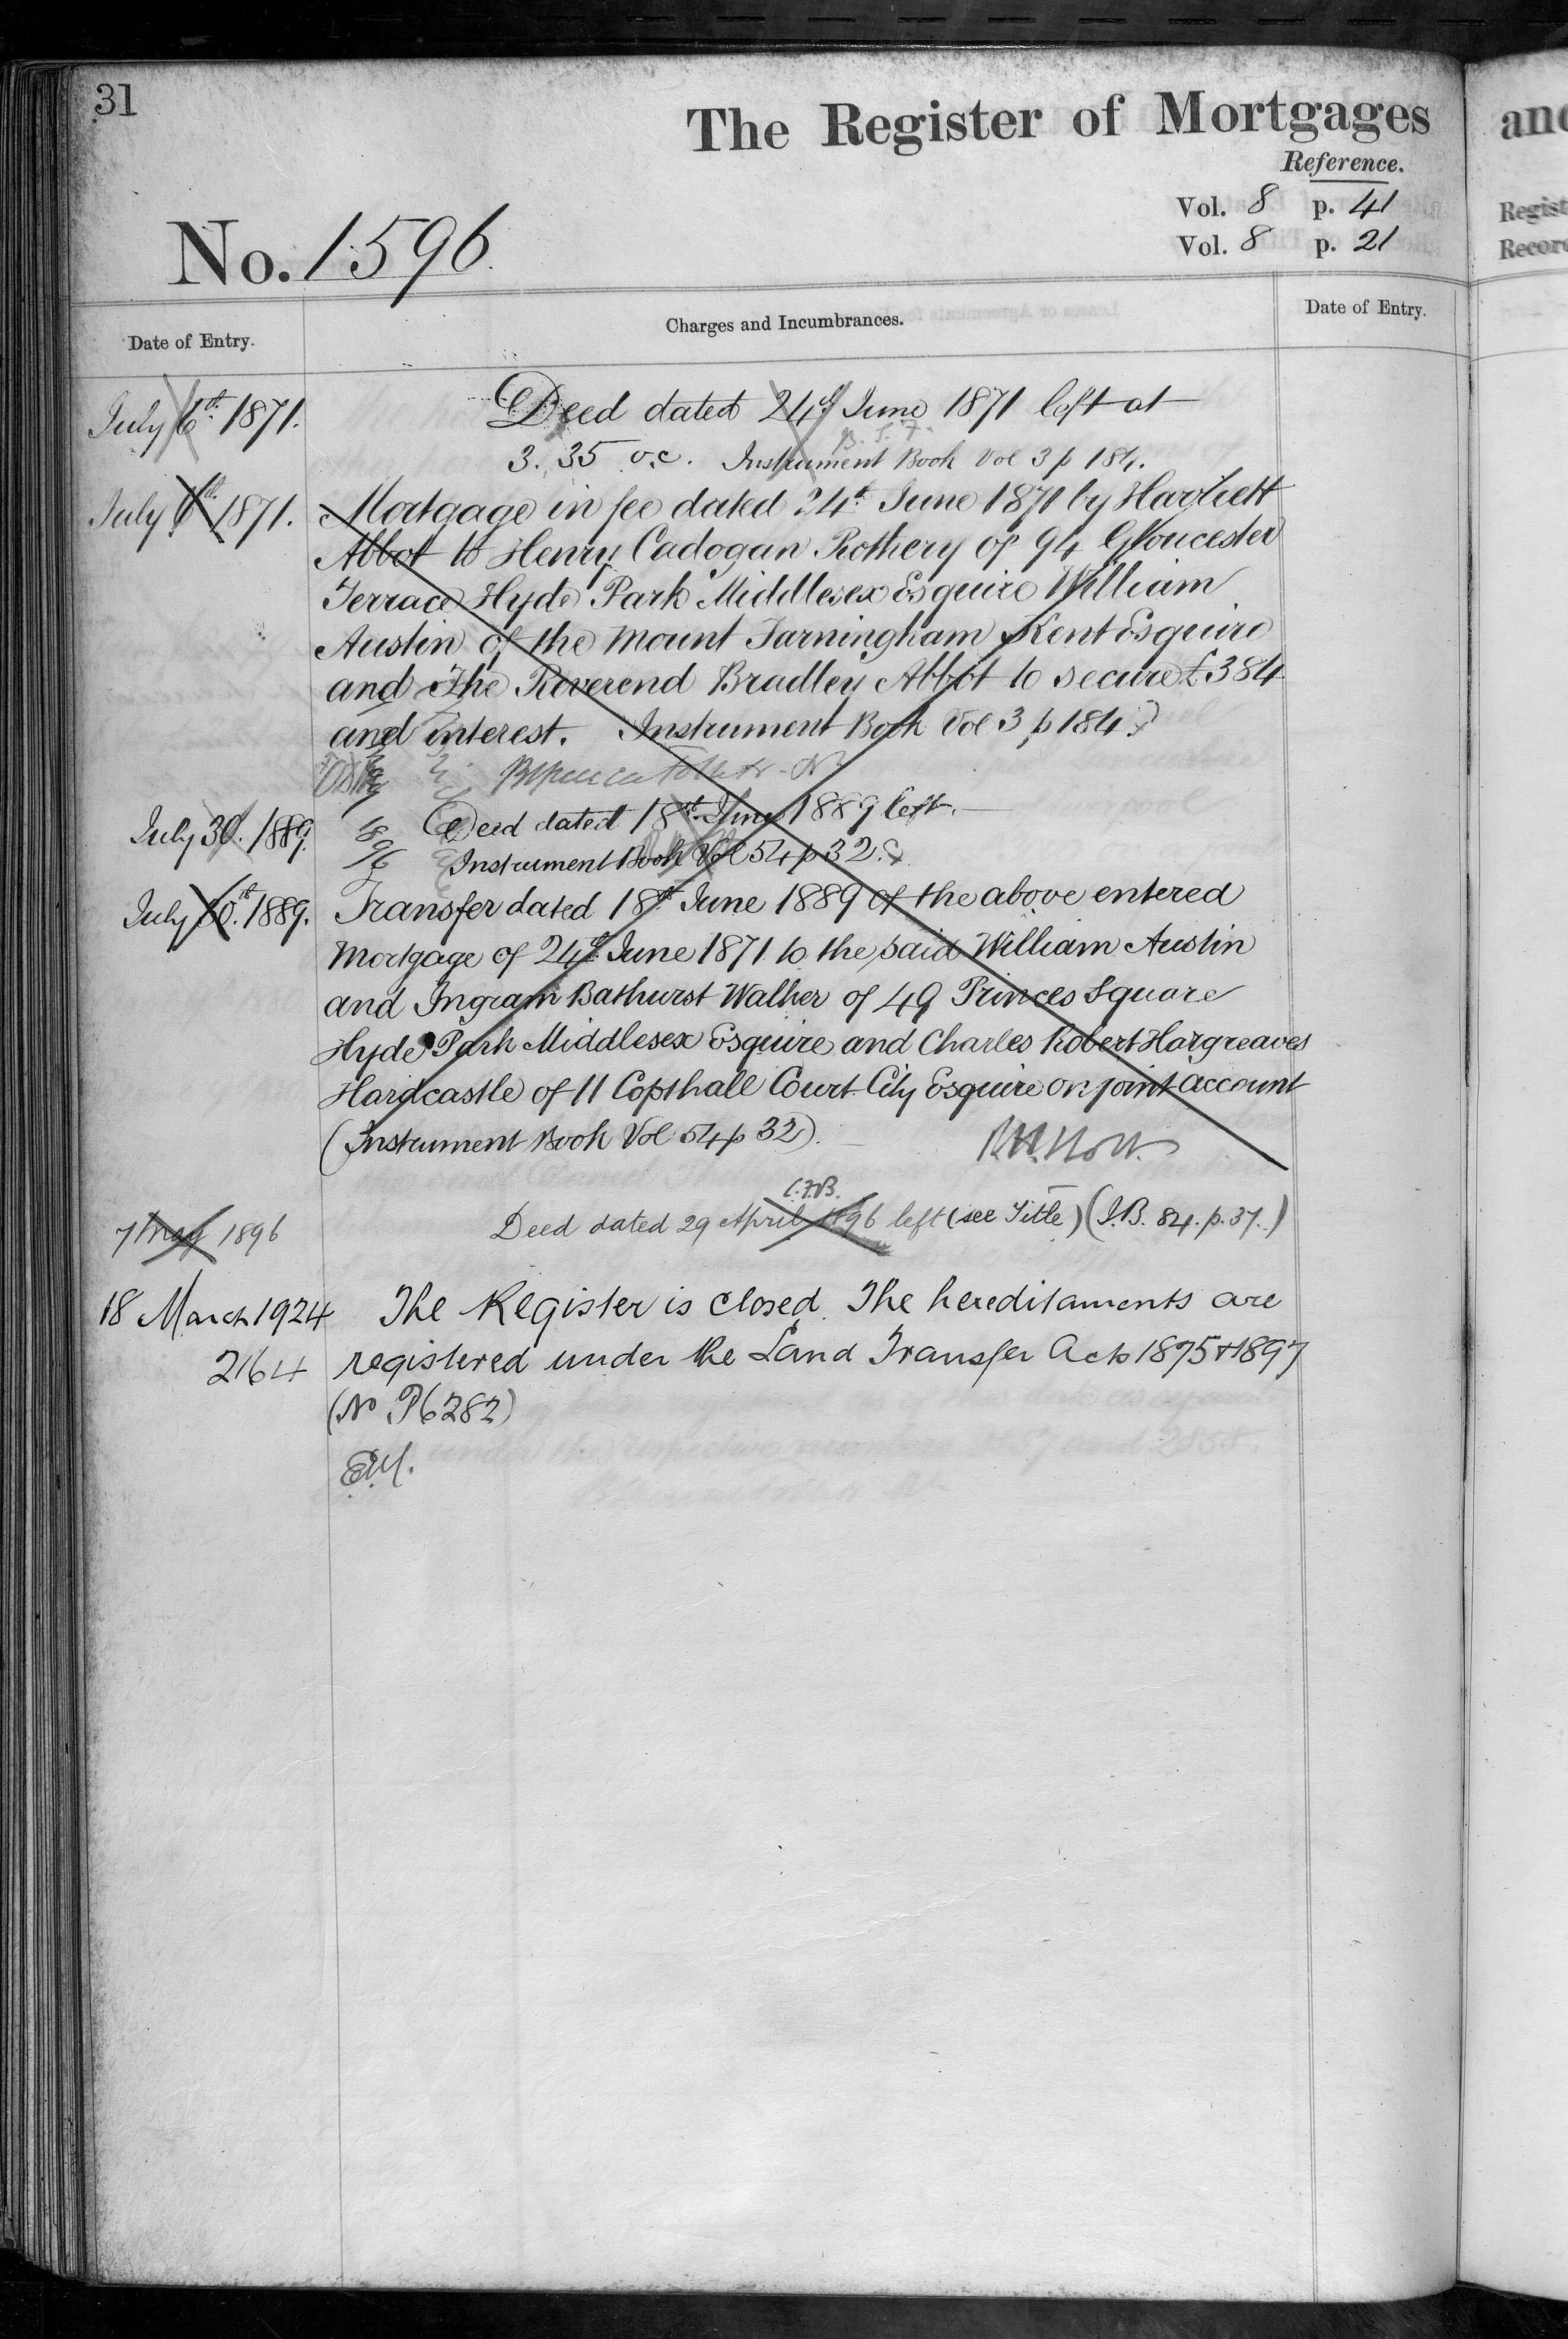 31
The Register of Mortgages
Reference.
Vol. 8 p. 41
Vol. 8 p. 21
No. 1596.
Date of Entry.
Charges and Incumbrances.
Date of Entry.
July 6th 1871.
Deed dated 24th June 1871 left at
3. 35 o.c. Instrument Book Vol 3 p 184.
July 6th 1871.
Mortgage in fee dated 24th June 1871 by
Abbot to Henry Cadogan Rothery of 94 Gloucester
Terrace Hyde Park Middlesex Esquire William
Austin of the Mount Farningham Kent Esquire
and The Reverend Bradley Abbot to secure £384
and interest. Instrument Book Vol 3 p 184.
July 30. 1889.
Deed dated 18th June 1889 left.
Instrument Book Vol 54 p 32.
July 30th. 1889.
Transfer dated 18th June 1889 of the above entered
Mortgage of 24th June 1871 to the said William Austin
and Ingram Bathurst Walker of 49 Princes Square
Hyde Park Middlesex Esquire and Charles Robert Hargreaves
Hardcastle of 11 Copthall Court City Esquire on joint account
(Instrument Book Vol 54 p 32).
C.F.B.
7 May 1896
Deed dated 29 April 1896 left (see Title) (I.B. 84. p. 37.)
18 March 1924
The Register is closed. The hereditaments are
2164
registered under the Land Transfer Acts 1875 & 1897
(No P6282)
and
Regist
Record